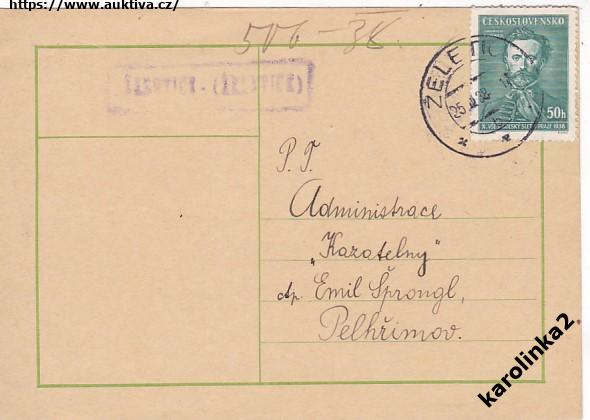 https://www.auktiva.cz/
506-38.
ČESKOSLOVENSKO
50h
X. VŠESOKOLSKÝ SLET V PRAZE 1938
ŽELETIC
P. T.
Administrace
„Kazatelny"
dp. Emil Šprongl,
Pelhřimov.
karolinka2